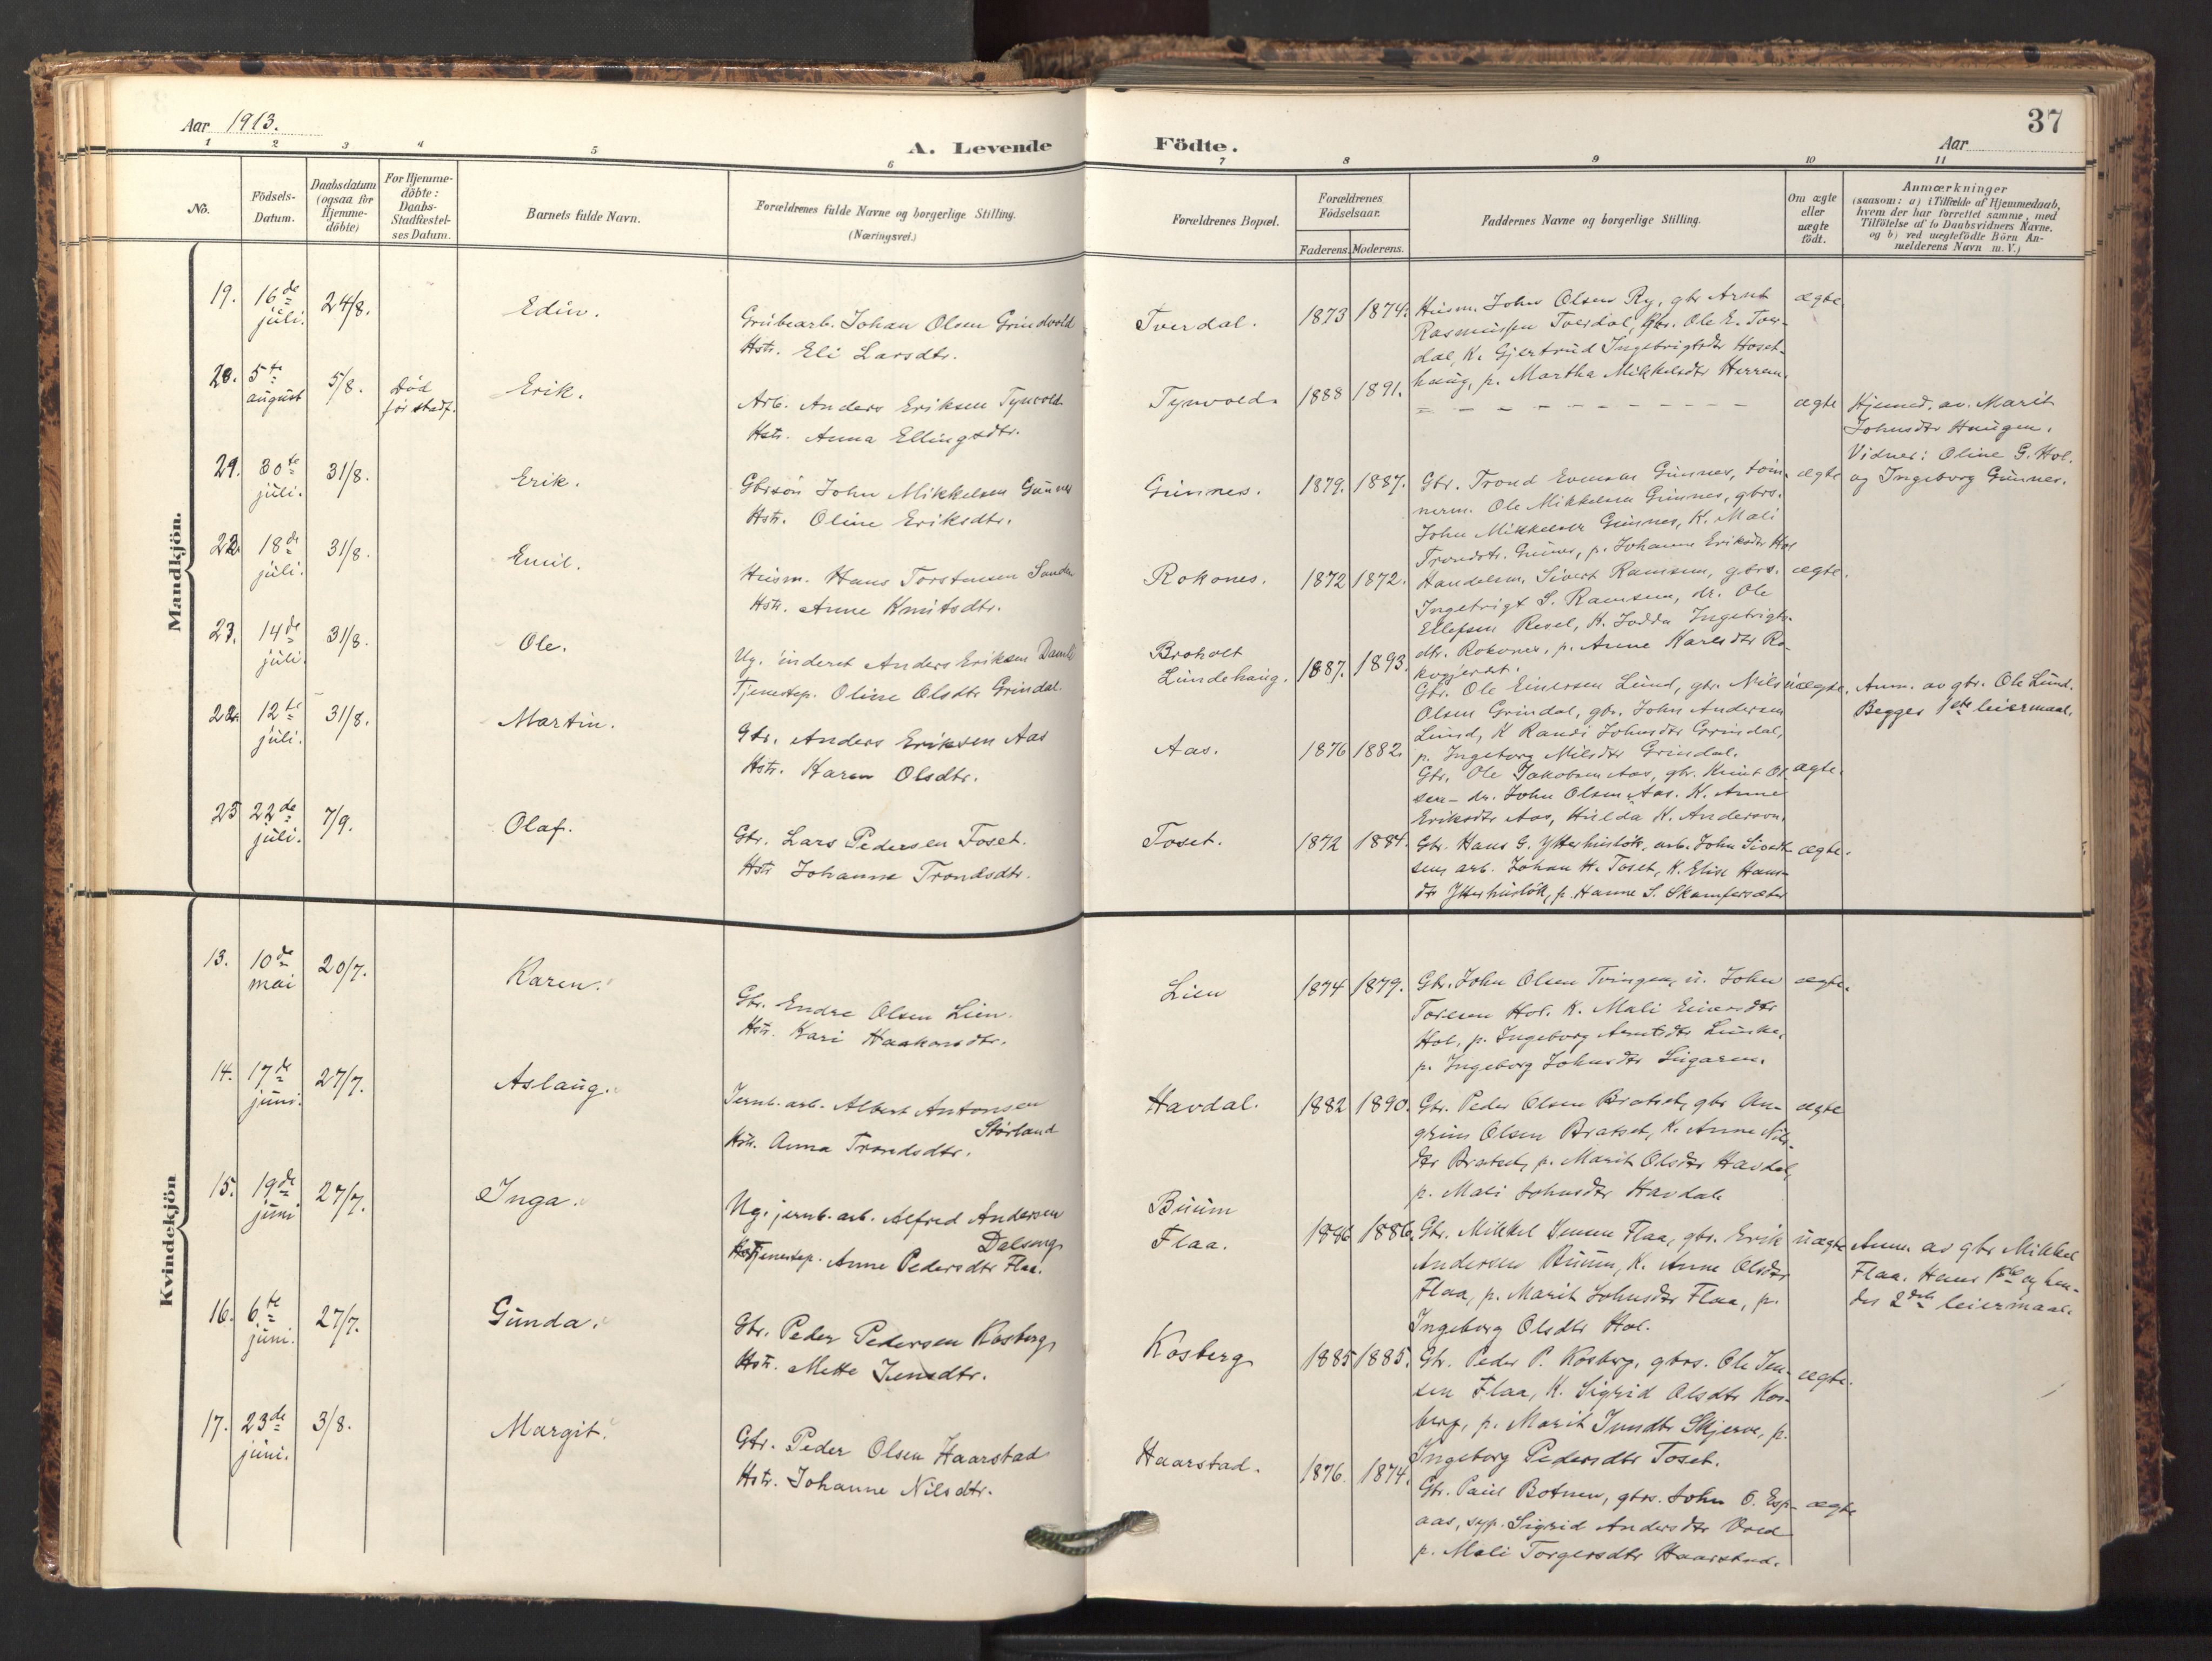 Aar 1913.
A. Levende
Födte.
Aar
37
1 2 3 4 5 6 7 8 9 10 11
No.
Födsels-
Datum.
Daabsdatum
(ogsaa for
Hjemme-
döbte)
For Hjemme-
döbte:
Daabs-
Stadfæstel-
ses Datum.
Barnets fulde Navn.
Forældrenes fulde Navne og borgerlige Stilling.
(Næringsvei.)
Forældrenes Bopæl.
Forældrenes
Födselsaar.
Faderens. Moderens.
Faddernes Navne og borgerlige Stilling.
Om ægte
eller
uægte
födt.
Anmærkninger
(saasom: a) i Tilfælde af Hjemmedaab,
hvem der har forrettet samme, med
Tilföielse af to Daabsvidners Navne,
og b) ved uægtefödte Börn An-
melderens Navn m. V.)
Mandkjön.
19. 16de juli. 24/8. Edin.
Grubearb. Johan Olsen Grindvold
Hstr. Eli Larsdtr.
Tverdal. 1873 1874.
Husm. John Olsen Ry, gbr Arnt
Rasmussen Tverdal, Gbr. Ole E. Tver-
dal, K. Gjertrud Ingebrigtsdtr Hoset-
haug, p. Martha Mikkelsdtr Herrem.
ægte
20. 5te august 5/8. død før stadf. Erik.
Arb. Anders Eriksen Tynvold
Hstr. Anna Ellingsdtr.
Tynvold. 1888 1891.
= - - - - - - - - - - -
ægte
Hjemmed. av. Marit
Johnsdtr Haugen.
Vidner: Oline G. Hol.
og Ingeborg Gunnes.
21. 30te juli. 31/8. Erik.
Gbrsøn John Mikkelsen Gunnes
Hstr. Oline Eriksdtr.
Gunnes. 1879. 1887.
Gbr. Trond Evensen Gunnes, tøm-
merm. Ole Mikkelsen Gunnes, gbrs.
John Mikkelsen Gunnes, K. Mali
Trondsdtr. Gunnes, p. Johanna Eriksdtr Hol
ægte
22. 18de juli. 31/8. Emil.
Husm. Hans Torstensen Sanden
Hstr. Anne Knutsdtr.
Rokones. 1872 1872.
Handelsm. Sivert Ramsem, gbrs.
Ingebrigt S. Ramsem, dr. Ole
Ellefsen Resel, K. Jodda Ingebrigts-
dtr. Rokones, p. Anne Karlsdtr Ro-
kogjerdet.
ægte.
23. 14de juli. 31/8. Ole.
Ug. inderst Anders Eriksen Damli
Tjenestep. Oline Olsdtr Grindal.
Broholt
Lundehaug. 1887. 1893.
Gbr. Ole Einersen Lund, gbr. Nils
Olsen Grindal, gbr. John Andersen
Lund, K Randi Johnsdtr Grindal,
p. Ingeborg Nilsdtr Grindal.
uægte.
Anm. av gbr. Ole Lund.
Begges 1ste leiermaal.
22. 12te juli. 31/8. Martin.
Gbr. Anders Eriksen Aas
Hstr. Karen Olsdtr.
Aas. 1876 1882.
Gbr. Ole Jakobsen Aas, gbr. Knut Ol-
sen - dr. John Olsen Aas. K. Anne
Eriksdtr Aas, Hulda K. Anderson.
ægte.
25 22de juli. 7/9. Olaf.
Gbr. Lars Pedersen Foset.
Hstr Johanna Trondsdtr.
Toset. 1872 1884.
Gbr. Hans G. Ytterhusløk, arb. John Sivert-
sen, arb. Johan H. Toset, K. Elise Hans-
dtr Ytterhusløk, p. Hanne S. Skamfersæter
ægte.
Kvindekjön
13. 10de mai 20/7. Karen.
Gbr. Endre Olsen Lien.
Hstr. Kari Haakonsdtr.
Lien 1874 1879.
Gbr. John Olsen Tvingen, u. John
Toresen Hol. K. Mali Einersdtr
Hol, p. Ingeborg Arntsdtr
p. Ingeborg Johnsdtr Sugaren.
ægte.
14. 17de juni. 27/7. Aslaug.
Jernb. arb. Albert Antonsen
Størland
Hstr. Anna Trondsdtr.
Havdal. 1882 1890.
Gbr. Peder Olsen Bratset, gbr An-
grim Olsen Bratset, K. Anne Nils-
dtr Bratset, p. Marit Olsdtr Havdal,
p. Mali Johnsdtr Havdal.
ægte
15. 19de juni 27/7. Inga.
Ug. jernb. arb. Alfred Andersen
Dalseng
Tjenestep. Anne Pedersdtr Flaa.
Buum
Flaa. 1886 1886.
Gbr. Mikkel Jensen Flaa, gbr. Erik
Andersen Buum, K. Anne Olsdtr
Flaa, p. Marit Johnsdtr Flaa, p.
Ingeborg Olsdtr Hol.
uægte
Anm. av gbr Mikkel
Flaa. Hans 1ste og hen-
des 2det leiermaal.
16. 6te juni. 27/7. Gunda.
Gbr. Peder Pedersen Kosberg
Hstr. Mette Jensdtr.
Kosberg 1885 1885.
Gbr. Peder P. Kosberg, gbrs. Ole Jen-
sen Flaa, K. Sigrid Olsdtr Kos-
berg, p. Marit Jensdtr Skjerve, p.
Ingeborg Pedersdtr Toset.
ægte.
17. 23de juni. 3/8. Margit.
Gbr. Peder Olsen Haarstad
Hstr. Johanne Nilsdtr.
Haarstad. 1876. 1874.
Gbr. Paul Botnen, gbrs. John O. Esp-
aas, syp. Sigrid Andersdtr
p. Mali Torgersdtr Haarstad.
ægte